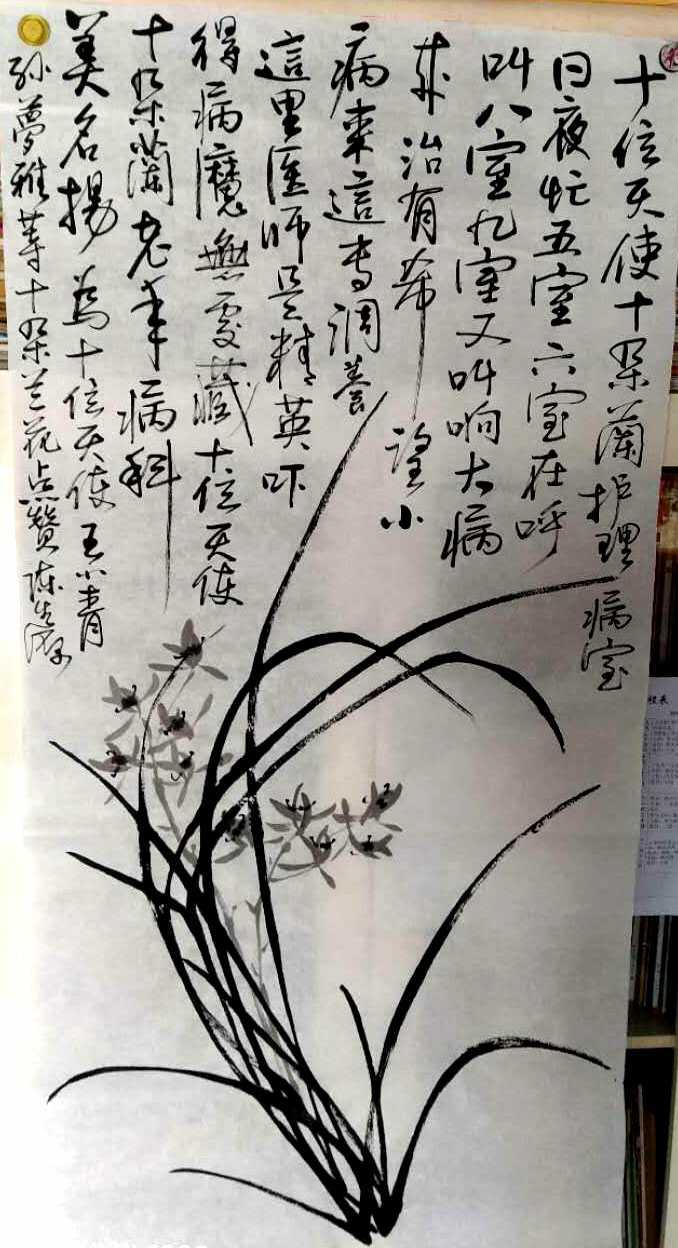 十位天使十朵蘭护理病室
日夜忙五室六室在呼
叫八室九室又叫响大病
来治有希望小
病来這专调養
這里医师是精英吓
得病魔無處藏十位天使
十朵蘭老年病科
美名揚為十位天使王小青
孙夢雅等十朵兰花点赞陈生